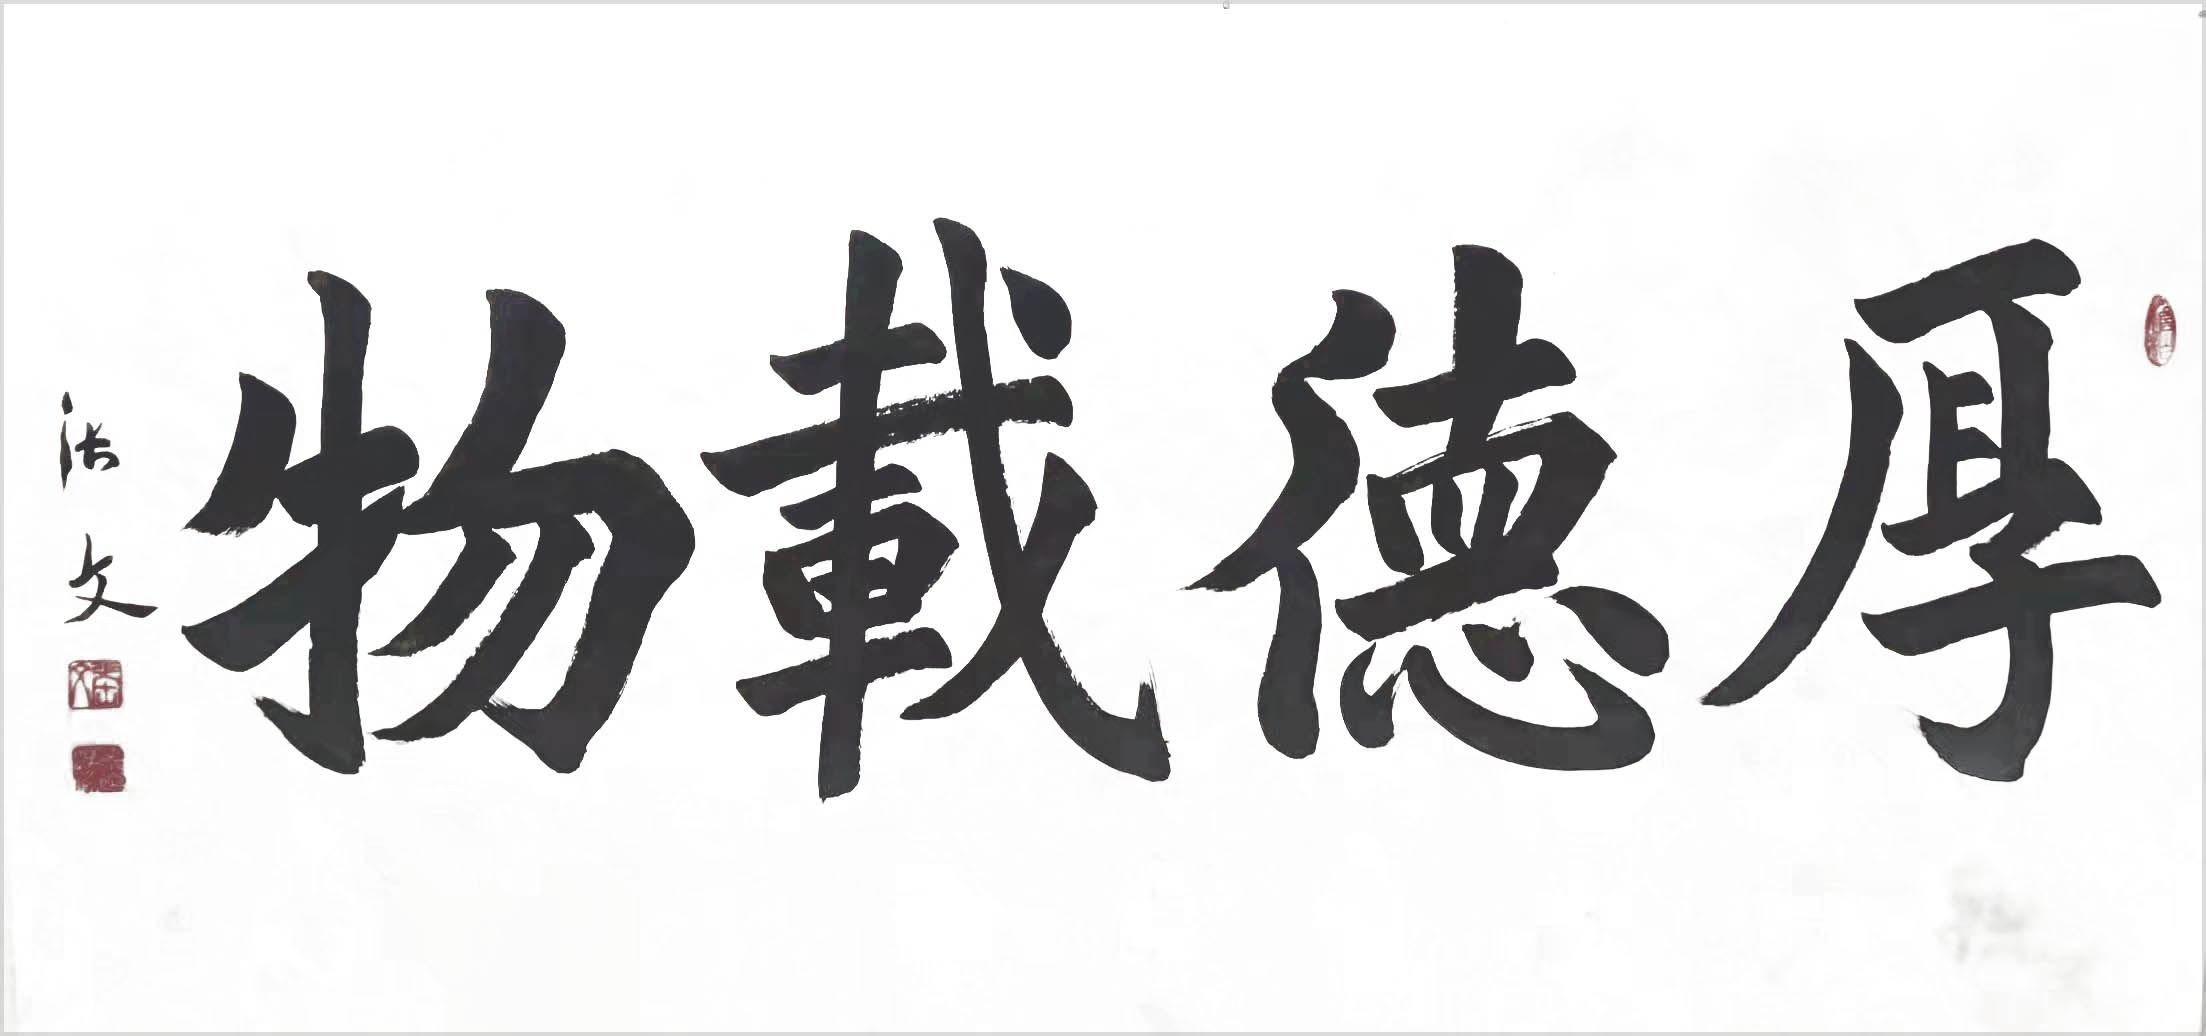 厚德載物
张文